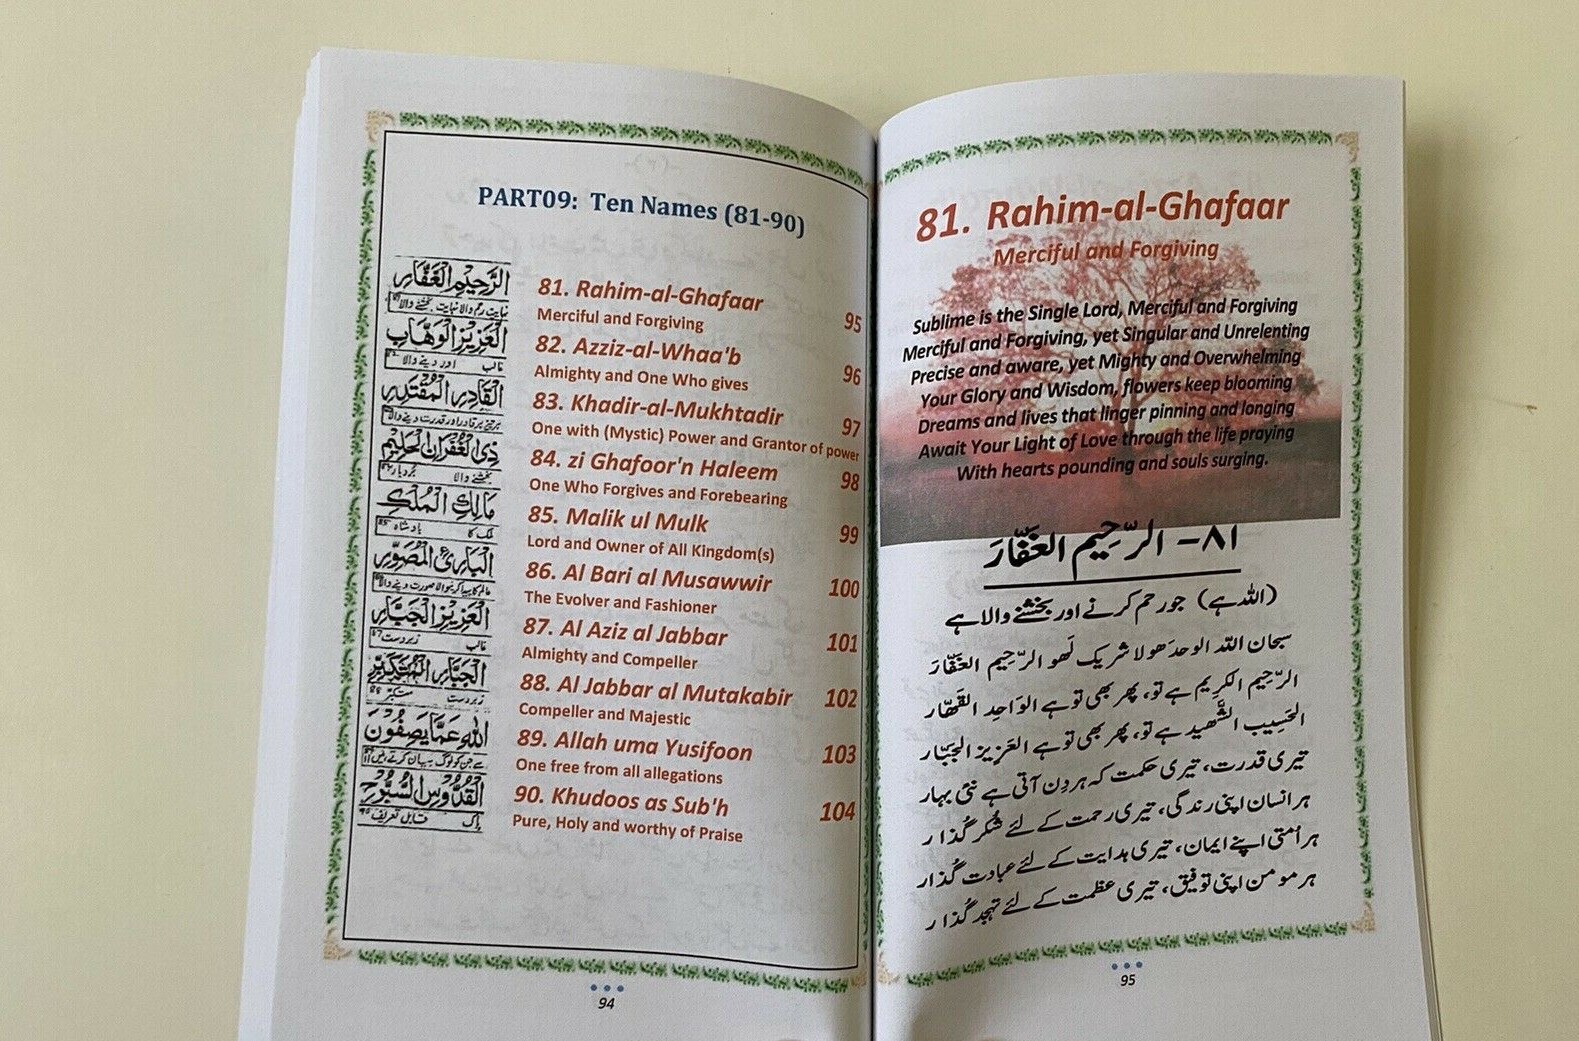 PART09: Ten Names (81-90)
الرَّحِيمِ الْغَفَّارِ
نہایت رحم والا نہایت بخشنے والا
الْعَزِيزِ الْوَهَّابِ
غالب اور دینے والا
الْقَادِرِ الْمُقْتَدِرِ
ذِى الْغُفْرَانِ الْحَلِيمِ
بخشنے والا بردبار
مَالِكِ الْمُلْكِ
ملک کا بادشاہ 85
الْبَارِئِ الْمُصَوِّرِ
الْعَزِيزِ الْجَبَّارِ
غالب زبردست 87
الْجَبَّارِ الْمُتَكَبِّرِ
زبردست متکبر 88
اللّٰهِ عَمَّا يَصِفُونَ
الْقُدُّوسِ السُّبُّوحِ
پاک قابل تعریف
81. Rahim-al-Ghafaar
Merciful and Forgiving 95
82. Azziz-al-Whaa'b
Almighty and One Who gives 96
83. Khadir-al-Mukhtadir
One with (Mystic) Power and Grantor of power 97
84. zi Ghafoor'n Haleem
One Who Forgives and Forebearing 98
85. Malik ul Mulk
Lord and Owner of All Kingdom(s) 99
86. Al Bari al Musawwir
The Evolver and Fashioner 100
87. Al Aziz al Jabbar
Almighty and Compeller 101
88. Al Jabbar al Mutakabir
Compeller and Majestic 102
89. Allah uma Yusifoon
One free from all allegations 103
90. Khudoos as Sub'h
Pure, Holy and worthy of Praise 104
94
81. Rahim-al-Ghafaar
Merciful and Forgiving
Sublime is the Single Lord, Merciful and Forgiving
Merciful and Forgiving, yet Singular and Unrelenting
Precise and aware, yet Mighty and Overwhelming
Your Glory and Wisdom, flowers keep blooming
Dreams and lives that linger pinning and longing
Await Your Light of Love through the life praying
With hearts pounding and souls surging.
۸۱- الرّحِیم الغَفّارَ
(اللہ ہے) جو رحم کرنے اور بخشنے والا ہے
سبحان اللہ الوحدَھولا شریک لَھو الرّحِیم الغَفّارَ
الرّحِیم الکرِیم ہے تو، پھر بھی تو ہے الوَاحِد القَھّار
الحَسِیب الشَّھِید ہے تو، پھر بھی تو ہے العَزِیز الجَبّار
تیری قدرت، تیری حکمت کہ ہر دِن آتی ہے نئی بہار
ہر انسان اپنی زندگی، تیری رحمت کے لئے شُکر گُذار
ہر اُمتی اپنے ایمان، تیری ہدایت کے لئے عبادت گُذار
ہر مومن اپنی توفیق، تیری عظمت کے لئے تہجد گُذار
95